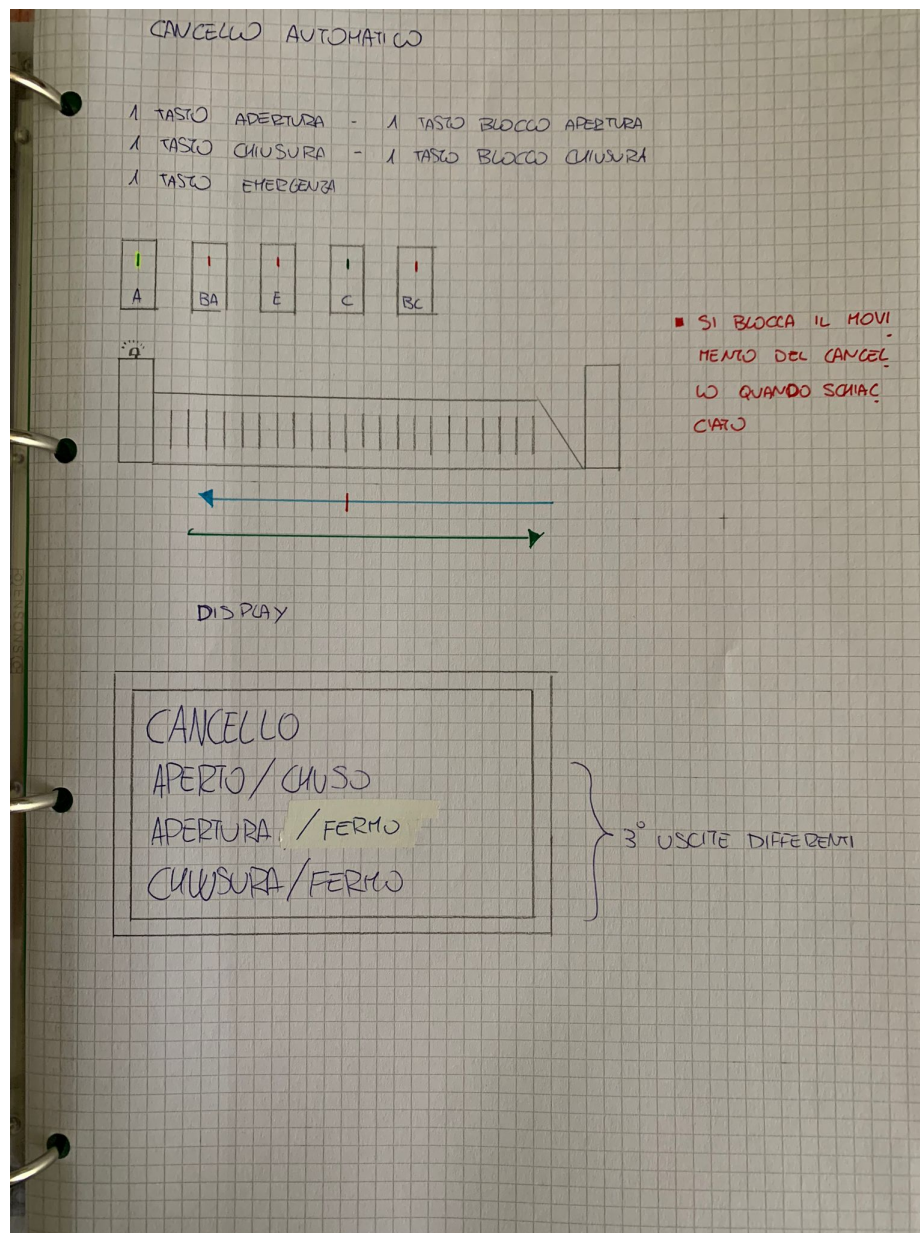 CANCELLO AUTOMATICO
1 TASTO APERTURA - 1 TASTO BLOCCO APERTURA
1 TASTO CHIUSURA - 1 TASTO BLOCCO CHIUSURA
1 TASTO EMERGENZA
A BA E C BC
■ SI BLOCCA IL MOVI
MENTO DEL CANCEL
LO QUANDO SCHIAC
CIATO
DISPLAY
CANCELLO
APERTO / CHIUSO
APERTURA / FERMO
CHIUSURA / FERMO
3° USCITE DIFFERENTI